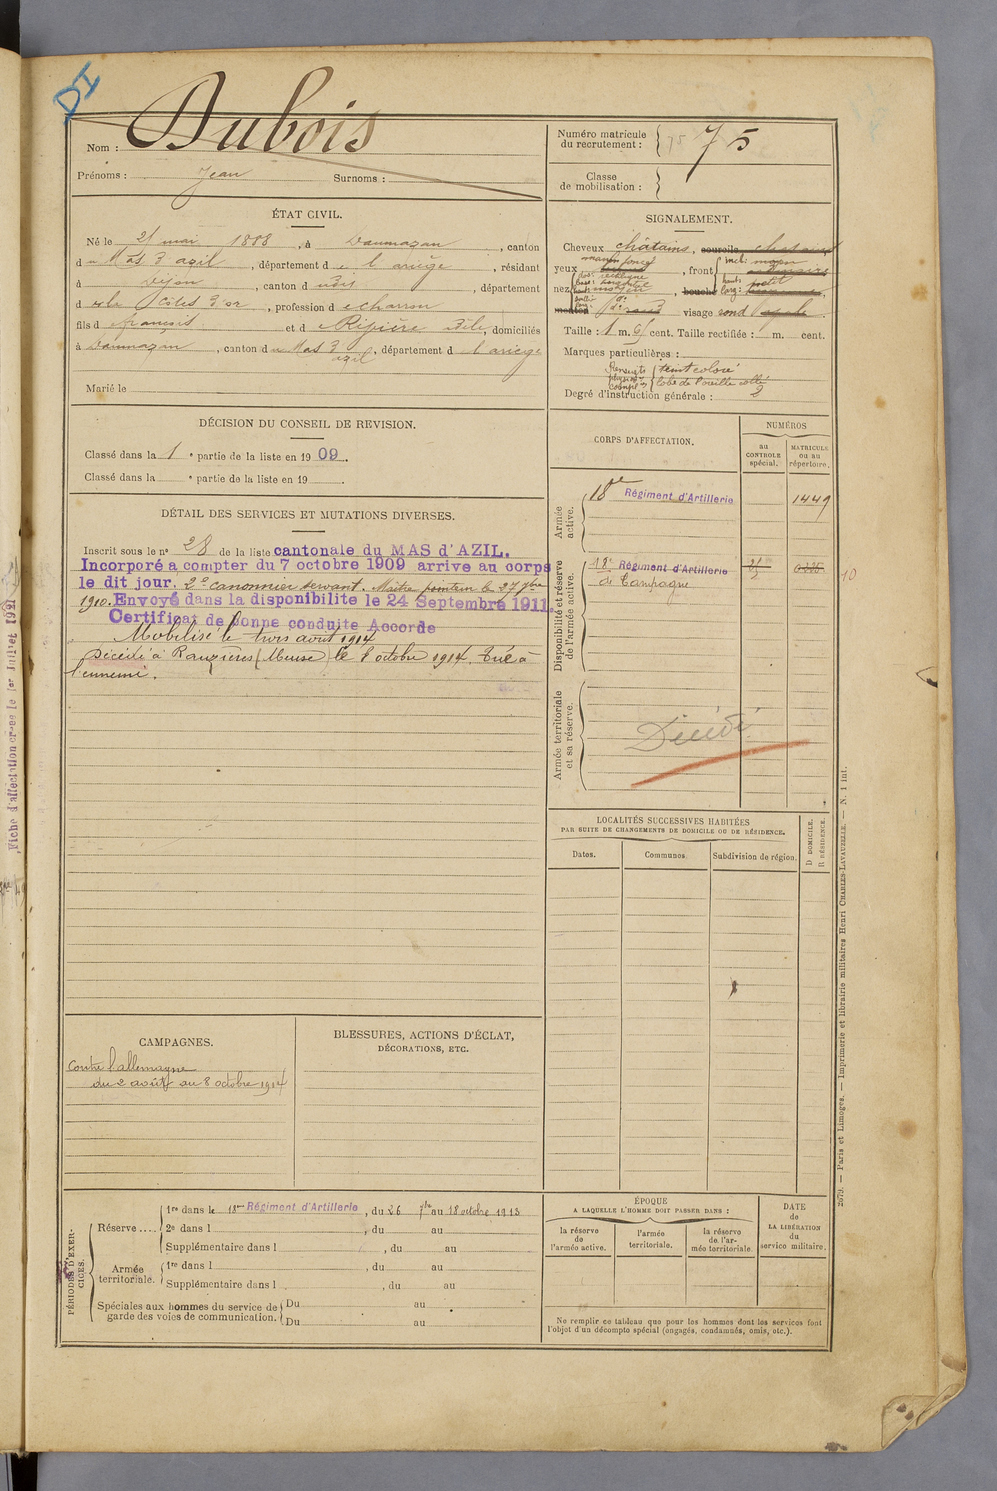 DI
Nom : Dubois
Prénoms : Jean Surnoms :
Numéro matricule du recrutement : 75 75
Classe de mobilisation :
ÉTAT CIVIL.
Né le 21 mai 1888, à Daumazan, canton
d u Mas d'azil, département d e l'ariège, résidant
à Dijon, canton d udit, département
d e la Côtes d'or, profession d e charron
fils d e françois et d e Répière, domiciliés
à Daumazan, canton d u Mas d'azil, département d e l'ariège
Marié le
SIGNALEMENT.
Cheveux châtains, sourcils chatains
yeux marron foncé, front incl: moyen
haut:
larg: petit
nez dos: rectiligne
base:
haut: moyen, bouche
menton visage rond
Taille : 1 m. 61 cent. Taille rectifiée : m. cent.
Marques particulières :
Renseigts physio compl. teint coloré
lobe de l'oreille collé
Degré d'instruction générale : 2
DÉCISION DU CONSEIL DE REVISION.
Classé dans la 1e partie de la liste en 1909.
Classé dans la e partie de la liste en 19
DÉTAIL DES SERVICES ET MUTATIONS DIVERSES.
Inscrit sous le no 28 de la liste cantonale du MAS d'AZIL.
Incorporé a compter du 7 octobre 1909 arrive au corps
le dit jour. 2e canonnier servant. Maître pointeur le 27 7bre
1910. Envoyé dans la disponibilite le 24 Septembre 1911.
Certificat de bonne conduite Accorde
Mobilisé le trois août 1914
Décédé à Ranzières (Meuse) le 8 octobre 1914. Tué à
l'ennemi.
CORPS D'AFFECTATION.
NUMÉROS
au CONTROLE spécial.
MATRICULE ou au répertoire.
Armée active.
18e Régiment d'Artillerie 1449
Disponibilité et réserve de l'armée active.
18e Régiment d'Artillerie
de Campagne
10
Armée territoriale et sa réserve.
Décédé
LOCALITÉS SUCCESSIVES HABITÉES
PAR SUITE DE CHANGEMENTS DE DOMICILE OU DE RÉSIDENCE.
Dates.
Communes.
Subdivision de région.
D DOMICILE.
R RÉSIDENCE.
CAMPAGNES.
Contre l'allemagne
du 2 août au 8 octobre 1914
BLESSURES, ACTIONS D'ÉCLAT,
DÉCORATIONS, ETC.
PÉRIODES D'EXERCICES.
Réserve....
1re dans le 18me Régiment d'Artillerie, du 26 7bre au 18 octobre 1913
2e dans l , du au
Supplémentaire dans l , du au
Armée territoriale.
1re dans l , du au
Supplémentaire dans l , du au
Spéciales aux hommes du service de garde des voies de communication.
Du au
Du au
ÉPOQUE
A LAQUELLE L'HOMME DOIT PASSER DANS :
la réserve de l'armée active.
l'armée territoriale.
la réserve de l'armée territoriale.
DATE de LA LIBÉRATION du service militaire.
Ne remplir ce tableau que pour les hommes dont les services font
l'objet d'un décompte spécial (engagés, condamnés, omis, etc.).
2679. — Paris et Limoges. — Imprimerie et librairie militaires Henri CHARLES-LAVAUZELLE. — N. 1 int.
Fiche d'affectation créée le 1er Juillet 1921